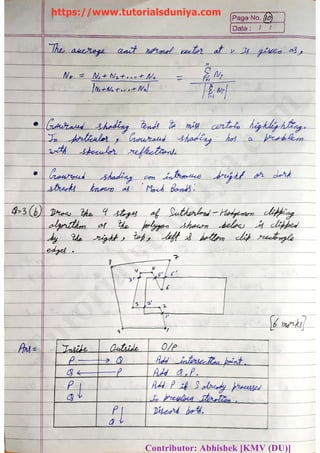 https://www.tutorialsduniya.com
Page No. 10
Date: / /
The average unit normal vector at v is given as,
Nv = N1 + N2 + ... + Nn = Σ Ni
|N1 + N2 + ... + Nn| |Σ Ni|
• Gouraud shading tends to miss certain highlighting.
In particular, Gouraud shading has a problem
with specular reflections.
• Gouraud shading can introduce bright or dark
streaks known as 'Mach Bands'.
Q-3 (b) Draw the 4 stages of Sutherland-Hodgeman clipping
algorithm as the polygon shown below is clipped
by the right, top, left & bottom clip rectangle
edges.
8 7
4 5
6
3 2
9 1
[6 marks]
Ans=
Inside Outside O/P
P → Q Add intersection point.
Q ← P Add Q, P.
P Q Add P if S already processed
in previous iteration.
P Q Discard both.
Contributor: Abhishek [KMV (DU)]